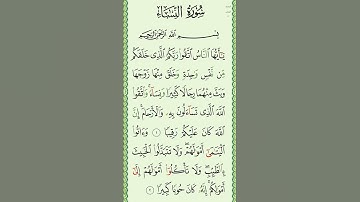 سُورَةُ النِّسَاءِ
بِسْمِ اللَّهِ الرَّحْمَٰنِ الرَّحِيمِ
يَٰٓأَيُّهَا النَّاسُ اتَّقُوا۟ رَبَّكُمُ الَّذِى خَلَقَكُم
مِّن نَّفْسٍ وَٰحِدَةٍ وَخَلَقَ مِنْهَا زَوْجَهَا
وَبَثَّ مِنْهُمَا رِجَالًا كَثِيرًا وَنِسَآءً وَاتَّقُوا۟
اللَّهَ الَّذِى تَسَآءَلُونَ بِهِۦ وَالْأَرْحَامَ إِنَّ
اللَّهَ كَانَ عَلَيْكُمْ رَقِيبًا ١ وَءَاتُوا۟
الْيَتَٰمَىٰٓ أَمْوَٰلَهُمْ وَلَا تَتَبَدَّلُوا۟ الْخَبِيثَ
بِالطَّيِّبِ وَلَا تَأْكُلُوٓا۟ أَمْوَٰلَهُمْ إِلَىٰٓ
أَمْوَٰلِكُمْ إِنَّهُۥ كَانَ حُوبًا كَبِيرًا ٢